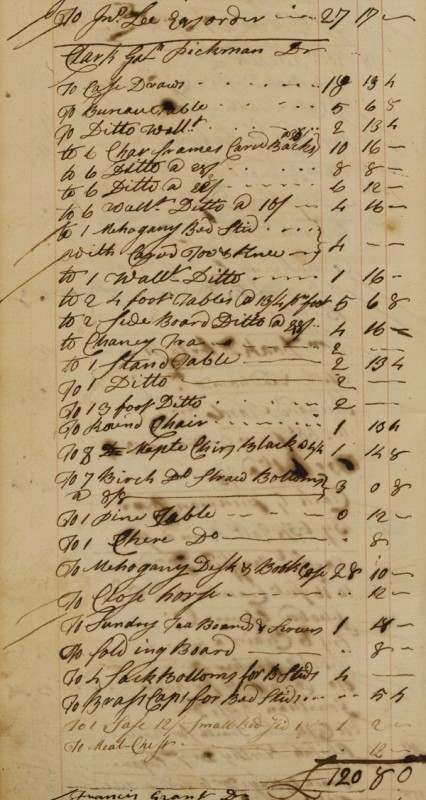 To Jno. Lee Esqs order 27 17 —
Clark Gtn Pickman Dr
To Case Draws 18 13 4
To Bureau Table 5 6 8
To Ditto Wallt 2 13 4
to 6 Chair frames Carvd Backs 10 16 —
to 6 Ditto a 28/ 8 8 —
to 6 Ditto a 22/ 6 12 —
to 6 Wallt Ditto a 16/ 4 16 —
to 1 Mahogany Bed Stid
with Carvd Toe & Knee 4 — —
to 1 Wallt Ditto 1 16 —
to 2 4 foot Tables a 13/4 pr foot 5 6 8
to 2 Side Board Ditto a 48/ 4 16 —
to Chaney Tra 2 —
to 1 Stand Table 2 13 4
To 1 Ditto 2 —
To 1 3 foot Ditto 2 —
To Round Chair 1 13 4
To 8 Chirs Black a 1 4 8
To 7 Birch Do Straw Bottoms
a 8/8 3 0 8
To 1 Pine Table 0 12 —
To 1 Chere Do 8
To Mehogany Desk & Book Case 28 10 —
To Close horse 12 —
To Sundry Tea Boards & Screws 1 —
To folding Board 8 —
To 4 Sack Bottoms for B Stids 4 —
To Brass Caps for Bed Stids 5 4
To 1 Small Bed Stid 1 2 —
To Meat Chest 12 —
£ 120 8 0
Francis Grant Dr